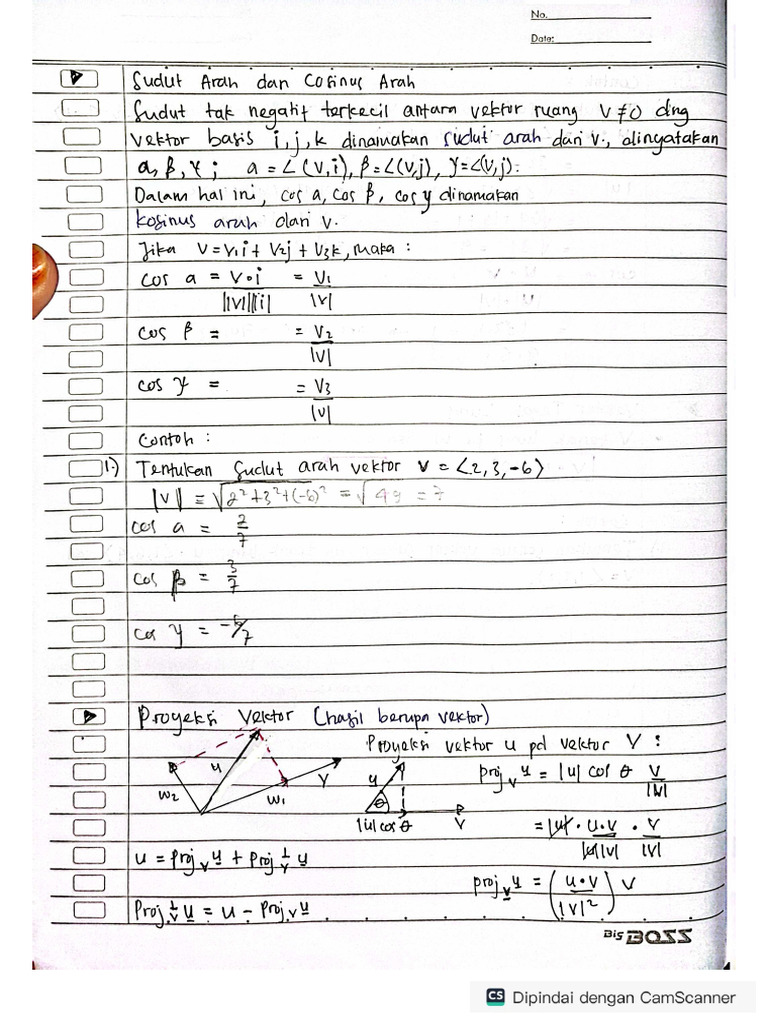 No.
Date:
Sudut Arah dan Cosinus Arah
Sudut tak negatif terkecil antara vektor ruang V≠0 dng
vektor basis i, j, k dinamakan sudut arah dari v., dinyatakan
α, β, γ ; α = ∠ (v,i), β = ∠(v,j), γ = ∠(v,j):
Dalam hal ini, cos α, cos β, cos γ dinamakan
kosinus arah dari v.
Jika V = v₁i + V₂j + V₃k, maka :
cos α = V • i / |v||i| = V₁ / |v|
cos β = = V₂ / |v|
cos γ = = V₃ / |v|
Contoh :
1.) Tentukan sudut arah vektor v = ⟨2, 3, -6⟩
|v| = √2²+3²+(-6)² = √49 = 7
cos α = 2/7
cos β = 3/7
cos γ = -6/7
Proyeksi Vektor (hasil berupa vektor)
Proyeksi vektor u pd vektor V :
u
w₂
w₁
v
u
θ
|u| cos θ
v
proj_v u = |u| cos θ v/|v|
= |u| • u•v / |u||v| • v/|v|
u = proj_v u + proj⊥_v u
proj_v u = (u•v / |v|²) v
Proj⊥_v u = u - Proj_v u
Bis BOSS
CS Dipindai dengan CamScanner